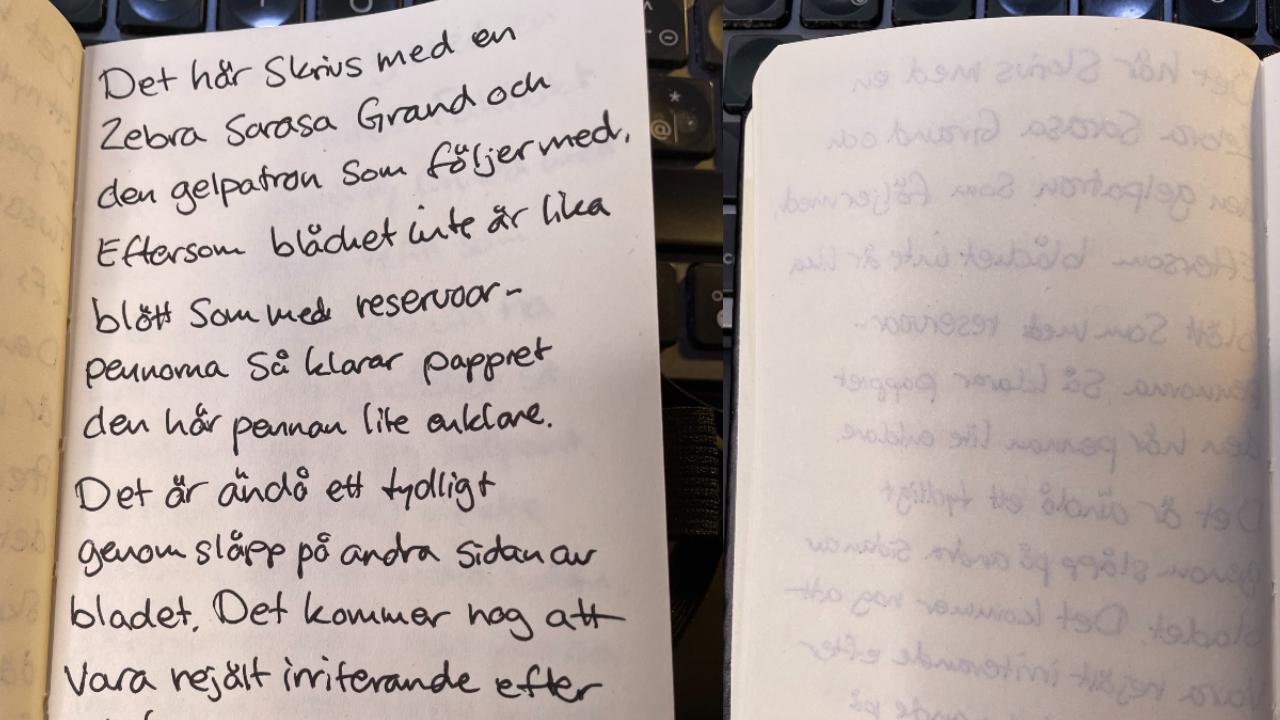 Det här skrivs med en
Zebra Sarasa Grand och
den gelpatron som följer med.
Eftersom bläcket inte är lika
blött som med reservoar-
pennorna så klarar pappret
den här pennan lite enklare.
Det är ändå ett tydligt
genom släpp på andra sidan av
bladet. Det kommer nog att
vara rejält irriterande efter